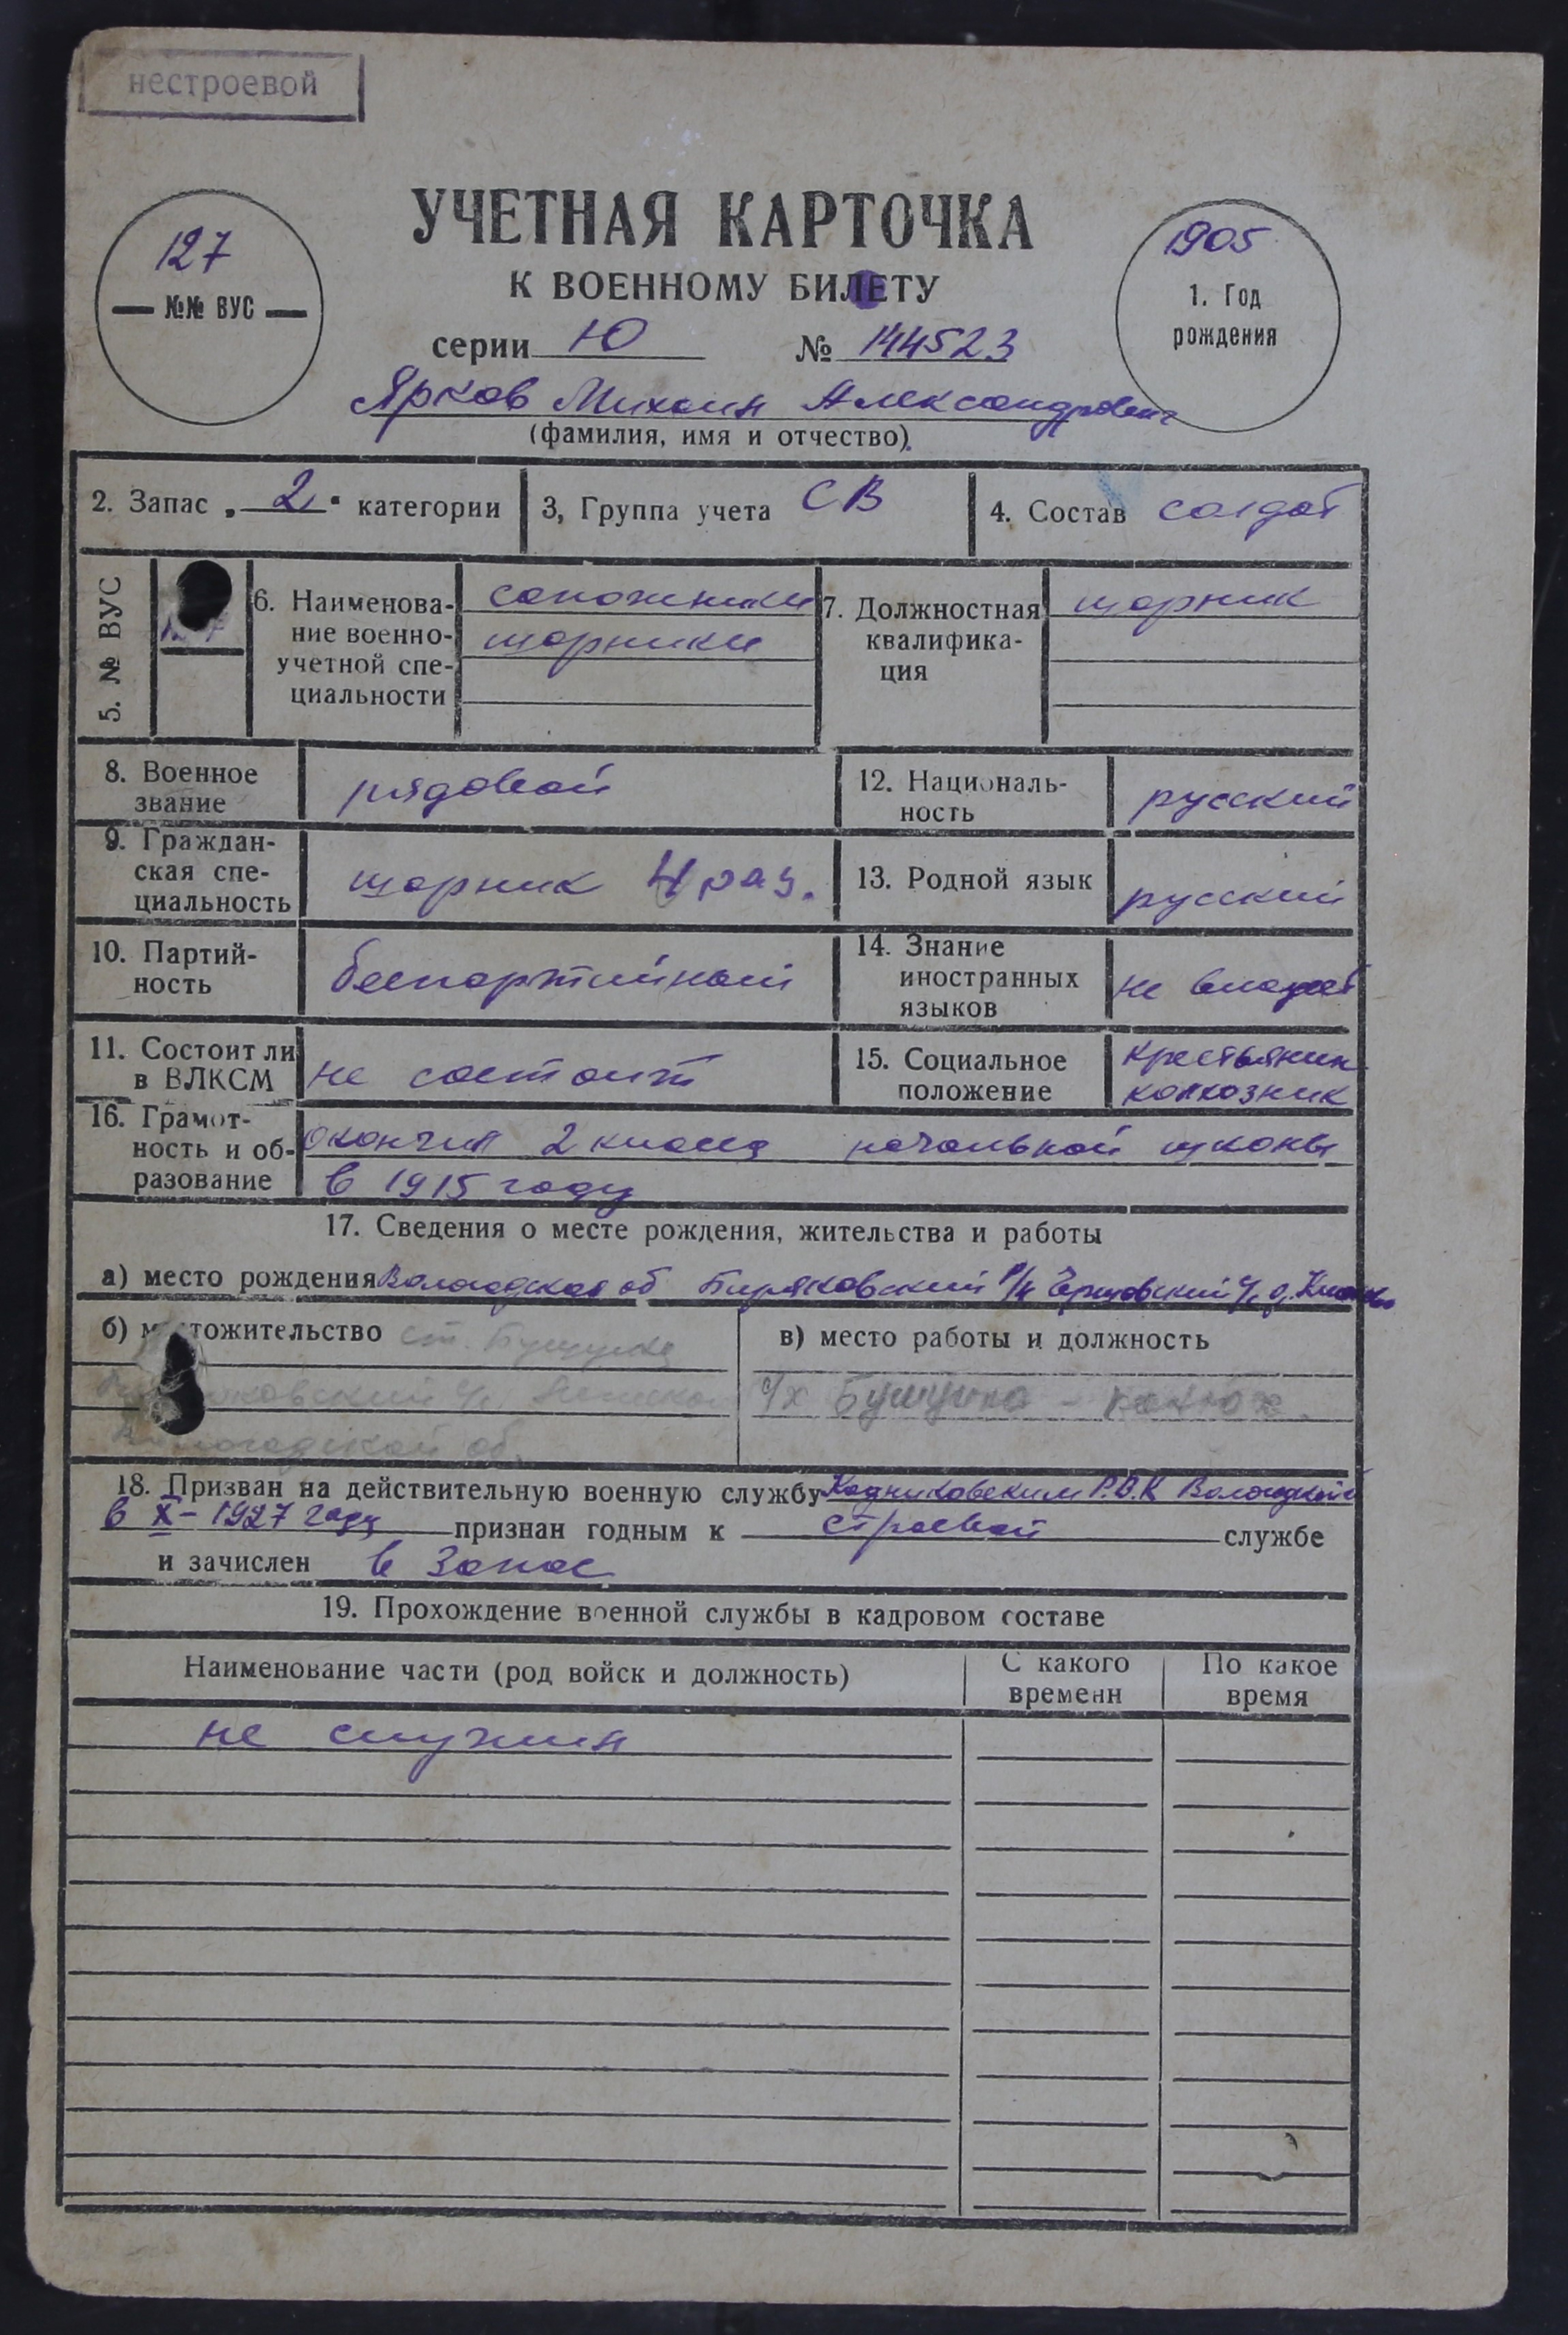 нестроевой
УЧЕТНАЯ КАРТОЧКА
К ВОЕННОМУ БИЛЕТУ
127
— №№ ВУС —
1905
1. Год
рождения
серии Ю № 144523
Ярков Михаил Александрович
(фамилия, имя и отчество).
2. Запас „ 2 " категории
3, Группа учета СВ
4. Состав солдат
5. № ВУС
6. Наименова-
ние военно-
учетной спе-
циальности
сапожники
шорники
7. Должностная
квалифика-
ция
шорник
8. Военное
звание
рядовой
12. Националь-
ность
русский
9. Граждан-
ская спе-
циальность
шорник 4 раз.
13. Родной язык
русский
10. Партий-
ность
беспартийный
14. Знание
иностранных
языков
не владеет
11. Состоит ли
в ВЛКСМ
не состоит
15. Социальное
положение
крестьянин
колхозник
16. Грамот-
ность и об-
разование
окончил 2 класса начальной школы
в 1915 году
17. Сведения о месте рождения, жительства и работы
а) место рождения Вологодская об Биряковский р/н с/с д.
б) местожительство ст. Бушуиха
с/с
Вологодской об.
в) место работы и должность
Бушуиха - конюх.
18. Призван на действительную военную службу Кадниковским Р.В.К Вологодской
в X - 1927 году признан годным к строевой службе
и зачислен в запас
19. Прохождение военной службы в кадровом составе
Наименование части (род войск и должность)
С какого
времени
По какое
время
не служил